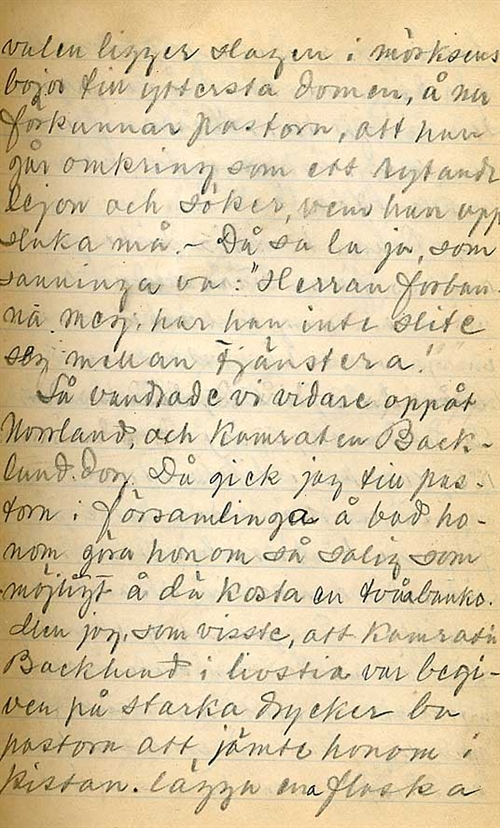 valen ligger slagen i mörksens
bojor till yttersta domen, å nu
förkunnar pastorn, att han
går omkring som ett rytande
lejon och söker, vem han upp
sluka må. - Då sa la ja, som
sanninga va: "Herran forban-
nå mej, har han inte slite
sej mellan Tjänstera!"
Så vandrade vi vidare oppåt
Norrland, och Kamraten Back-
lund dog. Då gick jag till pas-
torn i församlinga å bad ho-
nom göra honom så salig som
möjligt å då kosta en tvåa banko.
Men jag, som visste, att Kamraten
Backlund i livstia var begi-
ven på starka drycker ba
pastorn att jämte honom i
kistan lägga ena flaska